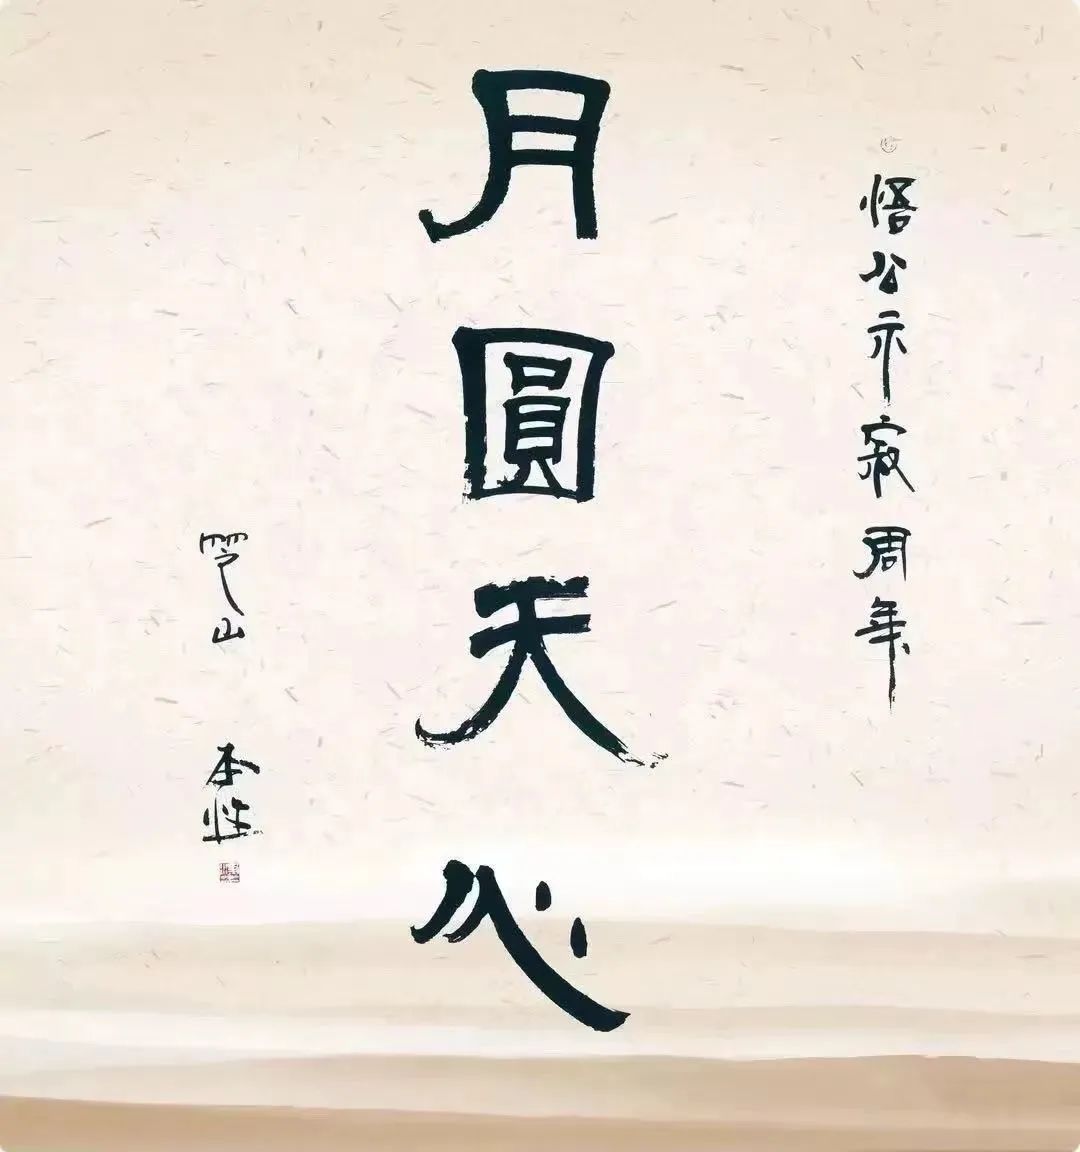 悟公示寂周年
月圓天心
芝山 本性